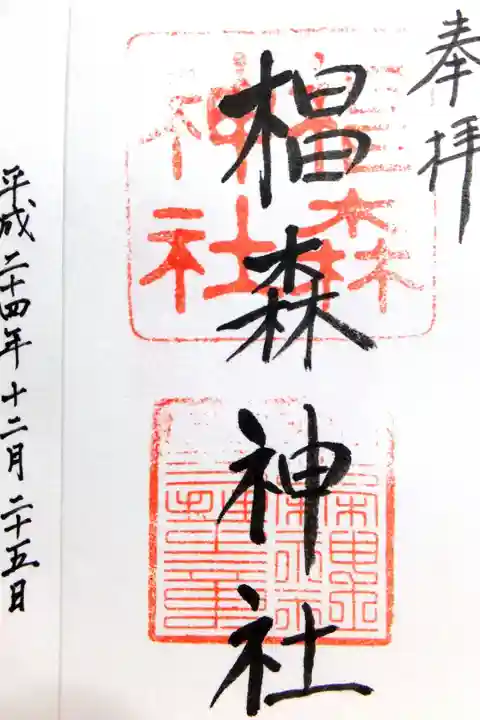 奉拝
椙森神社
平成二十四年十二月二十五日
椙森
神社